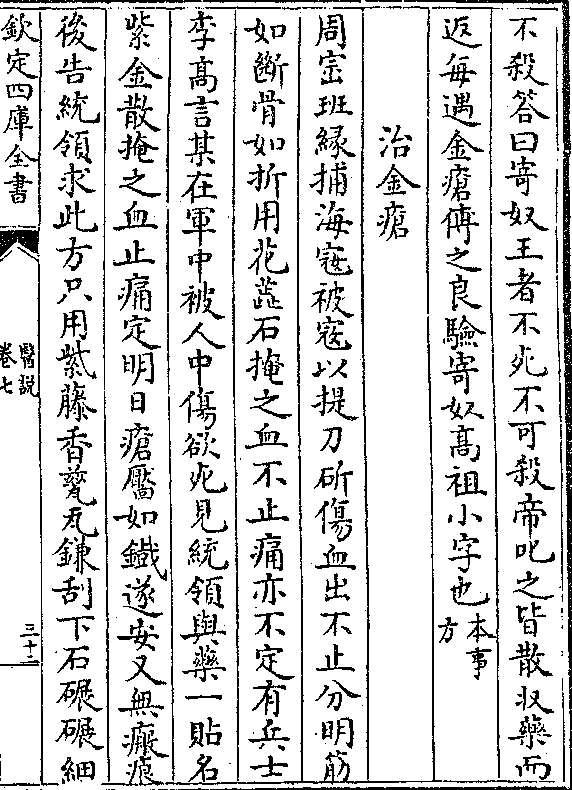 不殺答曰寄奴王者不死不可殺帝叱之皆散收藥而
返每遇金瘡傅之良驗寄奴髙祖小字也本事方
治金瘡
周宻班縁捕海寇被寇以提刀斫傷血出不止分明筋
如斷骨如折用花蕋石掩之血不止痛亦不定有兵士
李髙言某在軍中被人中傷欲死見統領與藥一貼名
紫金散掩之血止痛定明日瘡靨如鐡遂安又無瘢痕
後告統領求此方只用紫藤香甆瓦鎌刮下石碾碾細
欽定四庫全書
醫説
卷七
三十一